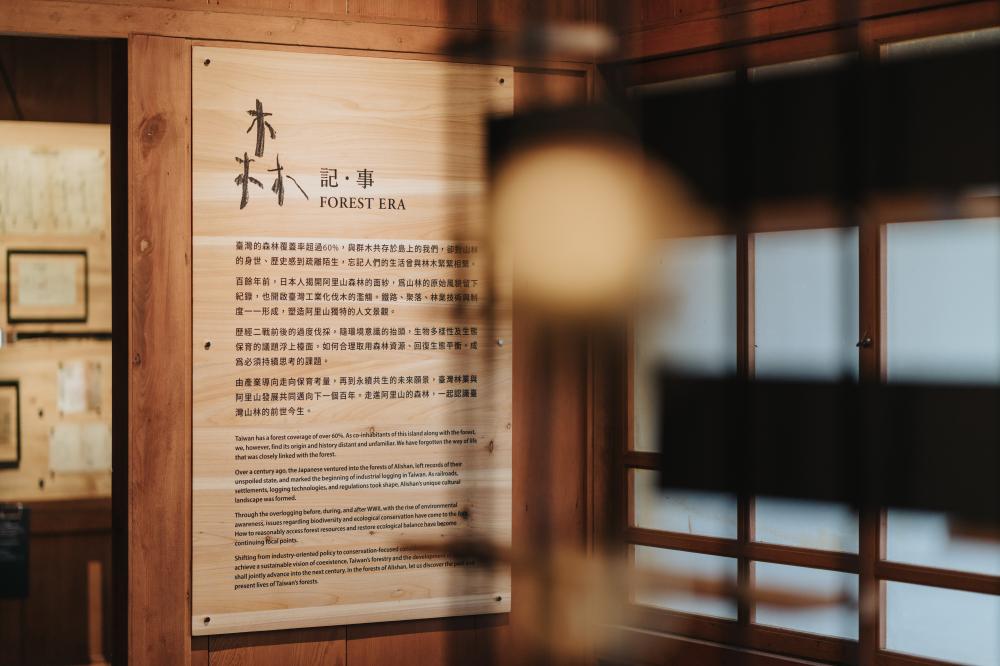 森
記·事
FOREST ERA
臺灣的森林覆蓋率超過60%，與群木共存於島上的我們，卻對山林
的身世、歷史感到疏離陌生，忘記人們的生活曾與林木緊緊相繫。
百餘年前，日本人揭開阿里山森林的面紗，爲山林的原始風貌留下
紀錄，也開啟臺灣工業化伐木的濫觴。鐵路、聚落、林業技術與制
度一一形成，塑造阿里山獨特的人文景觀。
歷經二戰前後的過度伐採，隨環境意識的抬頭，生物多樣性及生態
保育的議題浮上檯面，如何合理取用森林資源、回復生態平衡，成
爲必須持續思考的課題。
由產業導向走向保育考量，再到永續共生的未來願景，臺灣林業與
阿里山發展共同邁向下一個百年。走進阿里山的森林，一起認識臺
灣山林的前世今生。
Taiwan has a forest coverage of over 60%. As co-inhabitants of this island along with the forest,
we, however, find its origin and history distant and unfamiliar. We have forgotten the way of life
that was closely linked with the forest.
Over a century ago, the Japanese ventured into the forests of Alishan, left records of their
unspoiled state, and marked the beginning of industrial logging in Taiwan. As railroads,
settlements, logging technologies, and regulations took shape, Alishan's unique cultural
landscape was formed.
Through the overlogging before, during, and after WWII, with the rise of environmental
awareness, issues regarding biodiversity and ecological conservation have come to the fore.
How to reasonably access forest resources and restore ecological balance have become
continuing focal points.
Shifting from industry-oriented policy to conservation-focused
achieve a sustainable vision of coexistence, Taiwan's forestry and the development
shall jointly advance into the next century. In the forests of Alishan, let us discover the past and
present lives of Taiwan's forests.